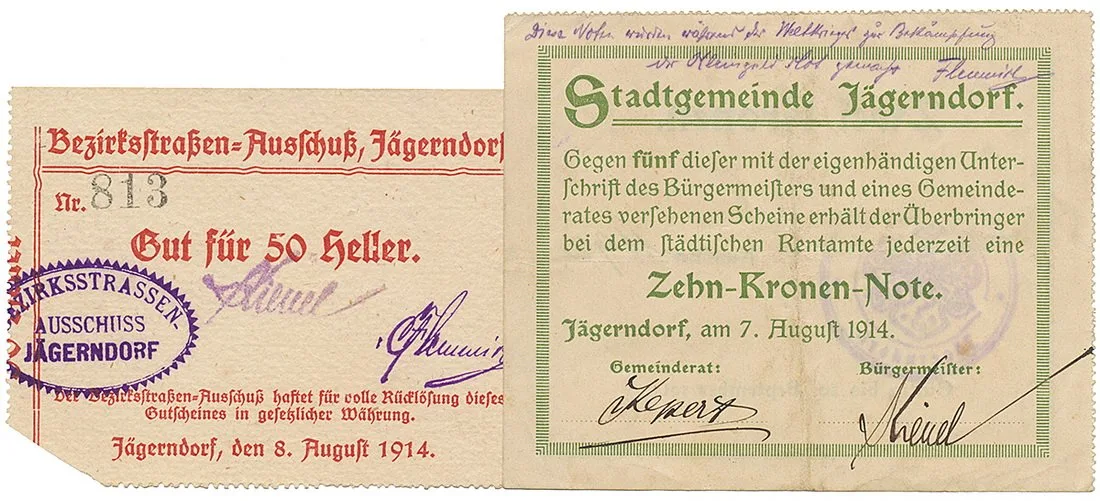 Bezirksstraßen=Ausschuß, Jägerndorf
Nr. 813
Gut für 50 Heller.
BEZIRKSSTRASSEN-
AUSSCHUSS
JÄGERNDORF
Der Bezirksstraßen-Ausschuß haftet für volle Rücklösung dieses
Gutscheines in gesetzlicher Währung.
Jägerndorf, den 8. August 1914.
Diese Noten wurden während des Weltkrieges zur Bekämpfung
der Kleingeld Not
Stadtgemeinde Jägerndorf.
Gegen fünf dieser mit der eigenhändigen Unter-
schrift des Bürgermeisters und eines Gemeinde-
rates versehenen Scheine erhält der Überbringer
bei dem städtischen Rentamte jederzeit eine
Zehn-Kronen-Note.
Jägerndorf, am 7. August 1914.
Gemeinderat: Bürgermeister:
Kienel